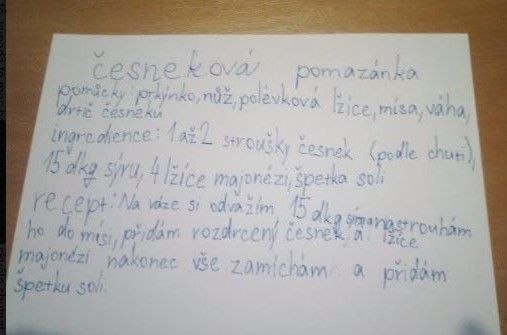 česneková pomazánka
pomůcky: prkýnko, nůž, polévková lžíce, mísa, váha,
drtič česneku
ingredience: 1 až 2 stroužky česnek (podle chuti),
15 dkg sýru, 4 lžíce majonézi, špetka soli
recept: Na váze si odvažím 15 dkg nastrouhám
ho do mísi, přidám rozdrcený česnek, a lžíce
majonézi nakonec vše zamíchám a přidám
špetku soli